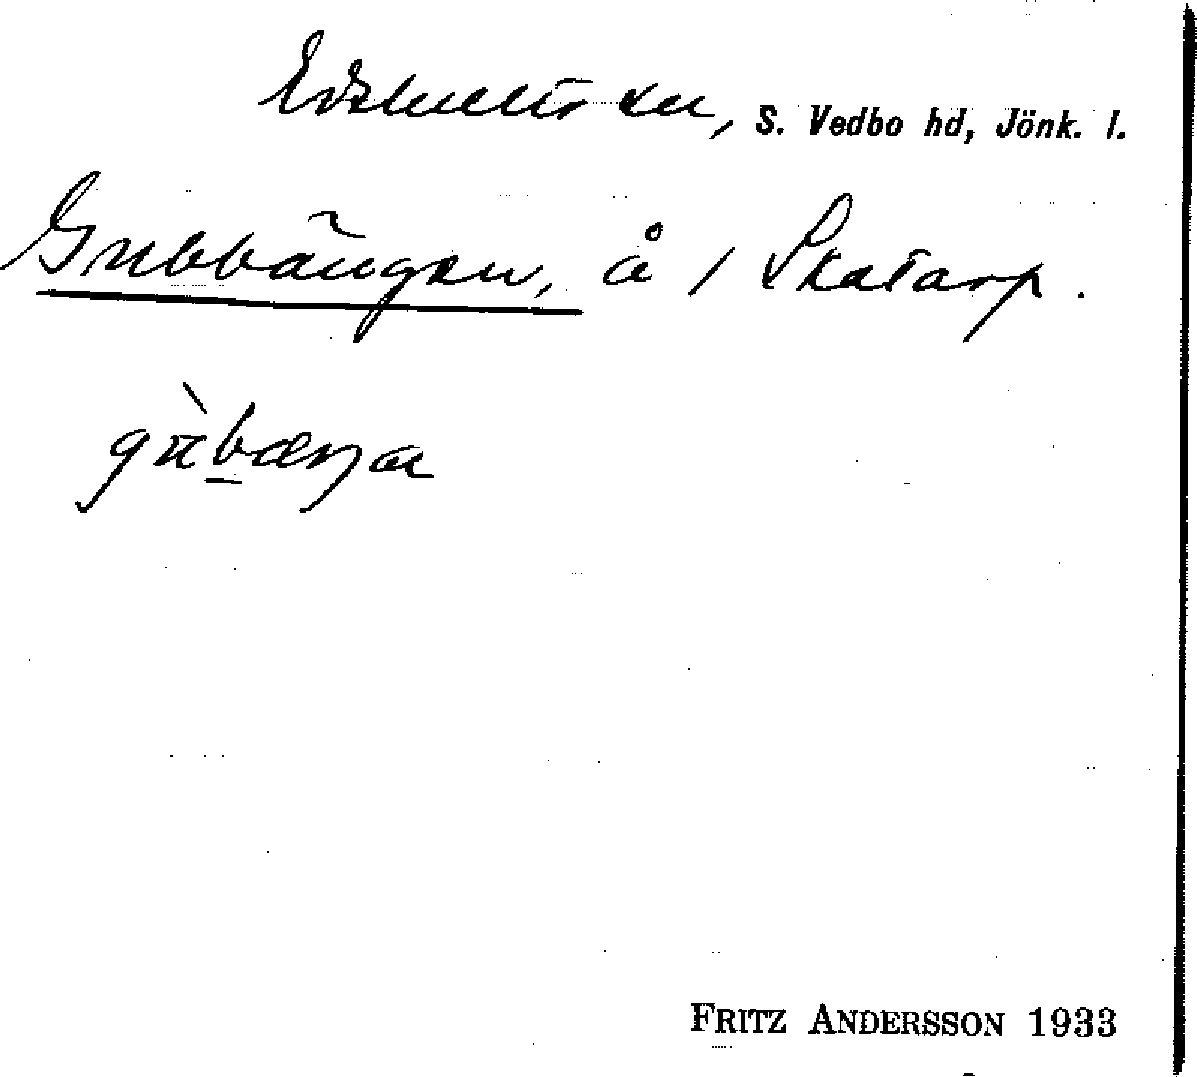 Edshults sn, S. Vedbo hd, Jönk. l.
Gubbängen, å 1 Skatarp.
gùbæŋa
FRITZ ANDERSSON 1933